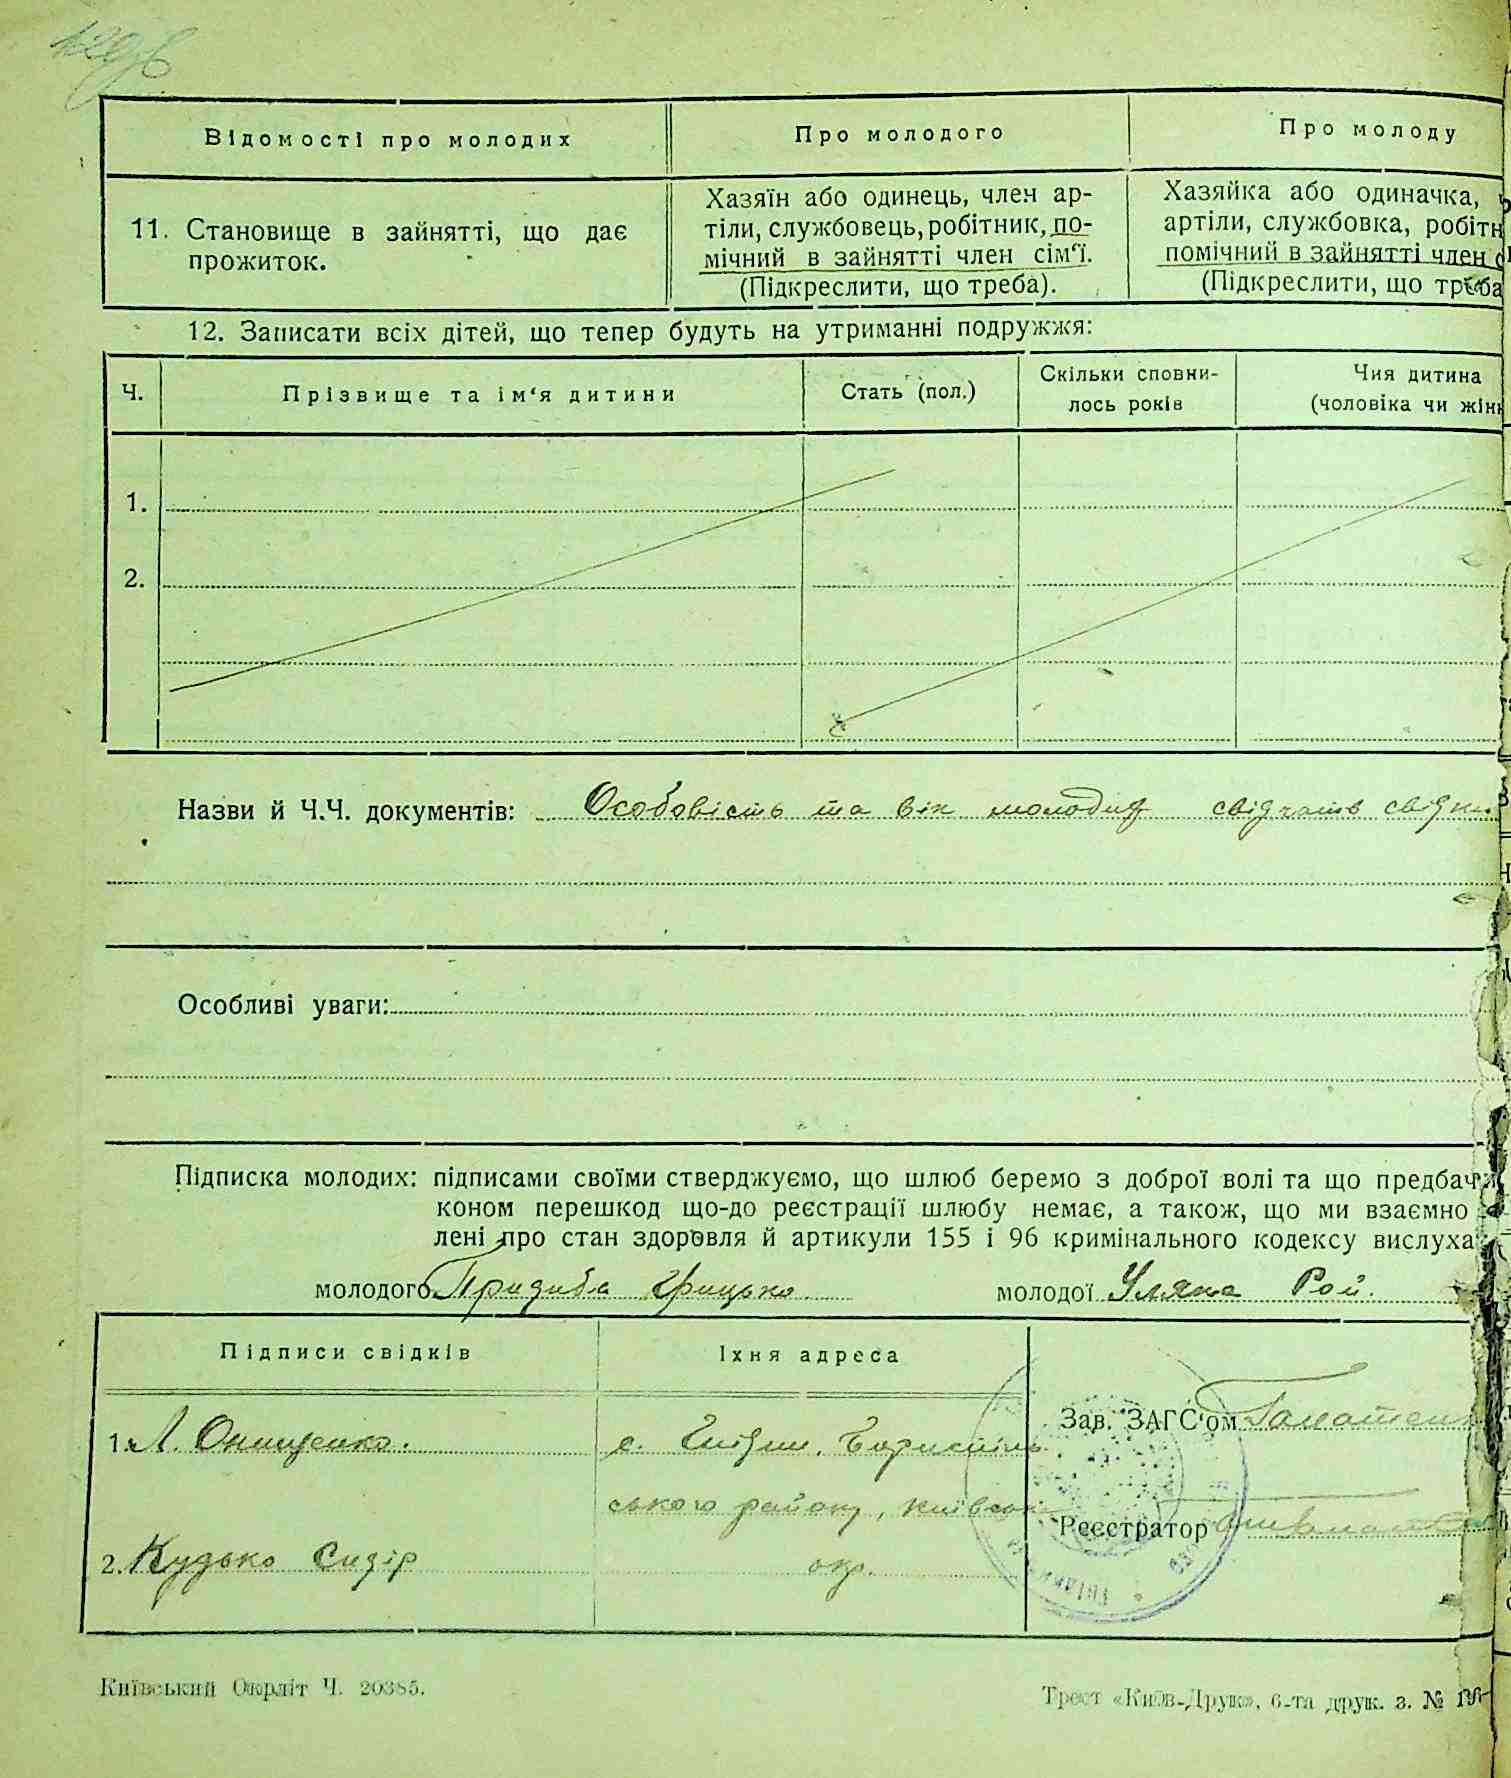 Відомості про молодих
Про молодого
Про молоду
11. Становище в зайнятті, що дає прожиток.
Хазяїн або одинець, член ар-
тіли, службовець, робітник, по-
мічний в зайнятті член сім'ї.
(Підкреслити, що треба).
Хазяйка або одиначка,
артіли, службовка, робітн
помічний в зайнятті член с
(Підкреслити, що треба
12. Записати всіх дітей, що тепер будуть на утриманні подружжя:
Ч.
Прізвище та ім'я дитини
Стать (пол.)
Скільки сповни-
лось років
Чия дитина
(чоловіка чи жінк
1.
2.
Назви й Ч.Ч. документів: Особовість та вік молодих свідчать свідки
Особливі уваги:
Підписка молодих: підписами своїми стверджуємо, що шлюб беремо з доброї волі та що предбач
коном перешкод що-до реєстрації шлюбу немає, а також, що ми взаємно
лені про стан здоровля й артикули 155 і 96 кримінального кодексу вислуха
молодого Придиба Грицько молодої Уляна Рой.
Підписи свідків
Їхня адреса
1. Л. Онищенко.
с. Гнідин, Бориспіль
ського району, Київськ
окр.
2. Кудько Сидір
Зав. ЗАГС'ом
Реєстратор
Київський Окрліт Ч. 20385.
Трест «Київ-Друк», 6-та друк. з. №